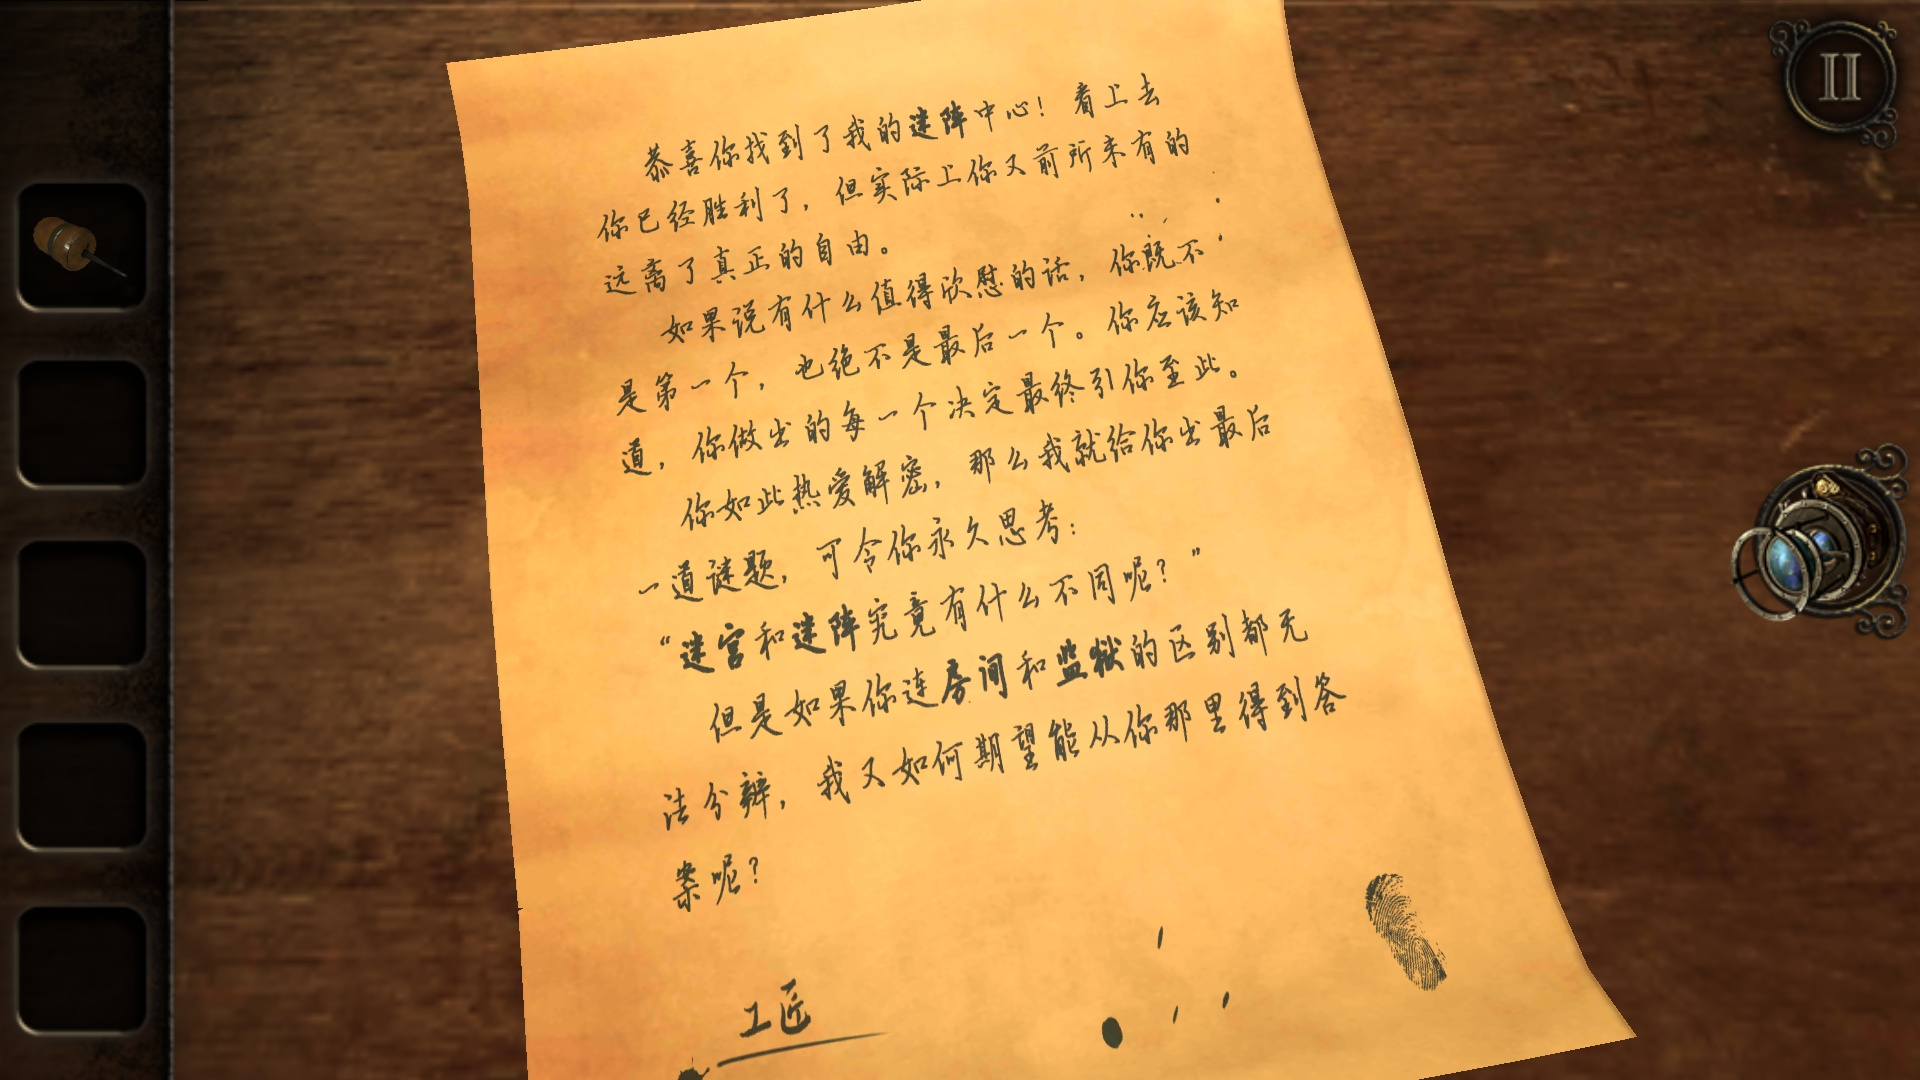 恭喜你找到了我的迷阵中心！看上去
你已经胜利了，但实际上你又前所未有的
远离了真正的自由。
如果说有什么值得欣慰的话，你既不
是第一个，也绝不是最后一个。你应该知
道，你做出的每一个决定最终引你至此。
你如此热爱解密，那么我就给你出最后
一道谜题，可令你永久思考：
“迷宫和迷阵究竟有什么不同呢？”
但是如果你连房间和监狱的区别都无
法分辨，我又如何期望能从你那里得到答
案呢？
工匠
II